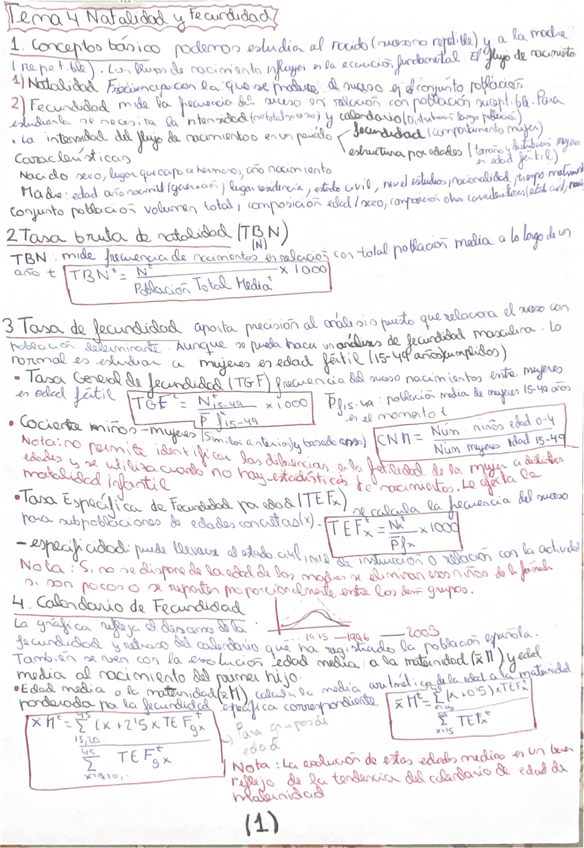 Tema 4 Natalidad y Fecundidad
1. Conceptos básico podemos estudia al nacido (suceso no repetible) y a la madre
(repetible). Los flujos de nacimiento influyen en la ecuación fundamental. El flujo de nacimiento
1) Natalidad Frecuencia con la que se produce el suceso en el conjunto población
2) Fecundidad mide la frecuencia del suceso en relación con población suceptible. Para
estudiarla se necesita la intensidad y calendario
· La intensidad del flujo de nacimientos en un periodo < fecundidad (comportamiento mujer)
estructura por edades
en edad fértil)
Características
Nacido sexo, lugar que ocupa e hermanos, año nacimiento
Madre: edad año nacmit/generación, lugar residencia, estado civil, nivel estudios, nacionalidad, tiempo
Conjunto población volumen total, composición edad/sexo, composición otras características
2 Tasa bruta de natalidad (TBN)
(N)
TBN: mide frecuencia de nacimientos en relación con total población media a lo largo de un
año t TBNᵗ = Nᵗ / Población Total Mediaᵗ x 1000
3 Tasa de fecundidad aporta precisión al análisis puesto que relaciona el suceso con
población determinante. Aunque se pueda hacer un análisis de fecundidad masculina. Lo
normal es estudiar a mujeres es edad fértil (15-49 años cumplidos)
· Tasa General de fecundidad (TGF) frecuencia del suceso nacimientos entre mujeres
es edad fértil TGFᵗ = Nᵗ15-49 / P̄ᵗf15-49 x 1000 P̄f15-49: población media de mujeres 15-49 años
en el momento t
· Cociente niños-mujeres (similar anterior y basado censo) CNM = Núm. niños edad 0-4 / Núm mujeres edad 15-49
Nota: no permite identificar las diferencias en la fertilidad de la mujer a distintas
edades y se utiliza cuando no hay estadísticas de nacimientos. Le afecta la
mortalidad infantil
· Tasa Específica de Fecundidad por edad (TEFx) se calcula la frecuencia del suceso
para subpoblaciones de edades concretas(x). TEFxᵗ = Nxᵗ / P̄fxᵗ x 1000
- especificidad: puede llevarse al estado civil, nivel de instrucción o relación con la actividad
Nota: Si no se dispone de la edad de las madres se eliminan esos niños de la formula
si son pocos o se reparten proporcionalmente entre los demás grupos.
4. Calendario de Fecundidad
1975 — 1996 — 2003
La gráfica refleja el descenso de la
fecundidad y retraso del calendario que ha registrado la población española.
También se ven con la evolución edad media a la maternidad (x̄M) y edad
media al nacimiento del primer hijo.
· Edad media a la maternidad (x̄M) calcula la media aritmética de la edad a la maternidad
ponderada por la fecundidad específica correspondiente.
x̄Mᵗ = Σ (x + 2'5 x TEFgxᵗ / Σ TEFgxᵗ
→ Para grupos de
edad
x̄Mᵗ = Σ (x + 0'5) x TEFxᵗ / Σ TEFxᵗ
Nota: La evolución de estas edades medias es un buen
reflejo de la tendencia del calendario de edad de
maternidad
(1)